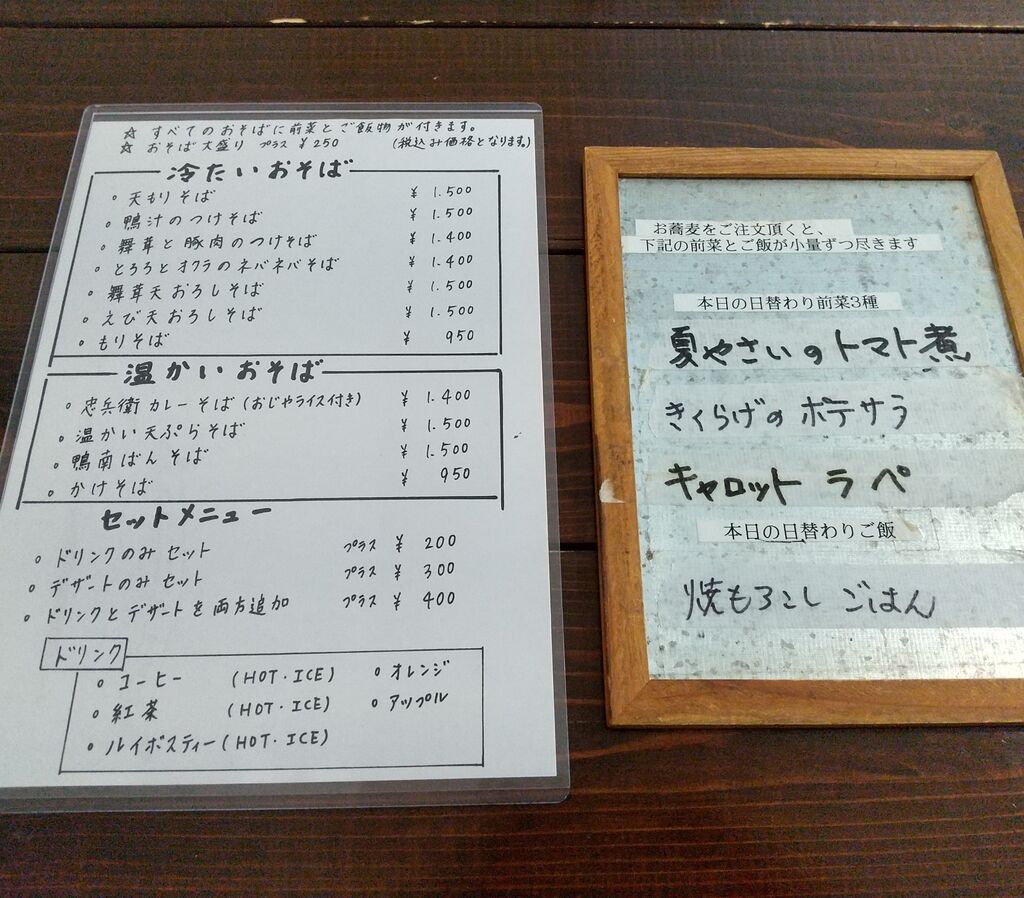 ☆ すべてのおそばに前菜とご飯物が付きます。
☆ おそば大盛り プラス ¥250 (税込み価格となります)
冷たいおそば
・天もりそば ¥1.500
・鴨汁のつけそば ¥1.500
・舞茸と豚肉のつけそば ¥1.400
・とろろとオクラのネバネバそば ¥1.400
・舞茸天おろしそば ¥1.500
・えび天おろしそば ¥1.500
・もりそば ¥950
温かいおそば
・忠兵衛カレーそば(おじやライス付き) ¥1.400
・温かい天ぷらそば ¥1.500
・鴨南ばんそば ¥1.500
・かけそば ¥950
セットメニュー
・ドリンクのみセット プラス ¥200
・デザートのみセット プラス ¥300
・ドリンクとデザートを両方追加 プラス ¥400
ドリンク
・コーヒー (HOT・ICE) ・オレンジ
・紅茶 (HOT・ICE) ・アップル
・ルイボスティー(HOT・ICE)
お蕎麦をご注文頂くと、
下記の前菜とご飯が小量ずつ尽きます
本日の日替わり前菜3種
夏やさいのトマト煮
きくらげのポテサラ
キャロットラペ
本日の日替わりご飯
焼もろこしごはん